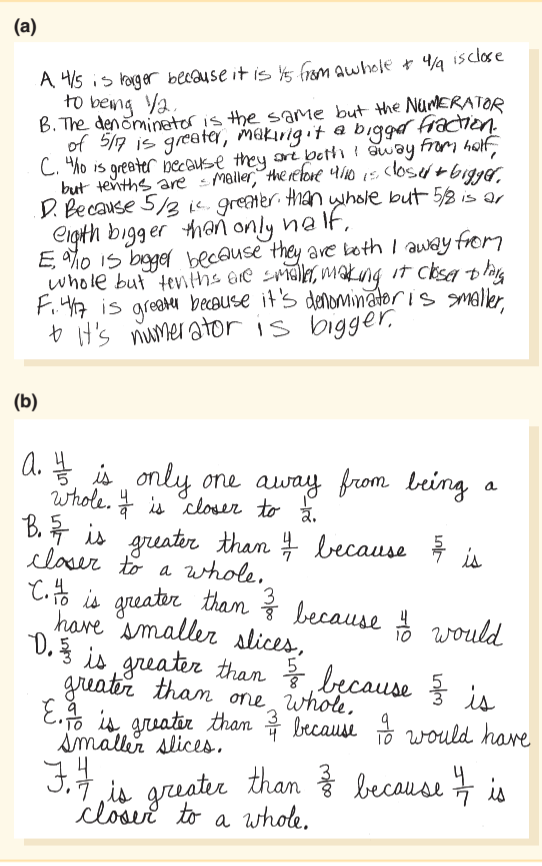 (a)
A. 4/5 is larger because it is 1/5 from a whole & 4/9 is close
to being 1/2.
B. The denominator is the same but the NUMERATOR
of 5/7 is greater, making it a bigger fraction.
C. 4/10 is greater because they are both 1 away from half,
but tenths are smaller, therefore 4/10 is closer & bigger.
D. Because 5/3 is greater than whole but 5/8 is an
eigth bigger than only half.
E. 9/10 is bigger because they are both 1 away from
whole but tenths are smaller, making it closer &
F. 4/7 is greater because it's denominator is smaller,
& it's numerator is bigger.
(b)
a. 4/5 is only one away from being a
whole. 4/9 is closer to 1/2.
B. 5/7 is greater than 4/7 because 5/7 is
closer to a whole.
C. 4/10 is greater than 3/8 because 4/10 would
have smaller slices.
D. 5/3 is greater than 5/8, because 5/3 is
greater than one whole.
E. 9/10 is greater than 3/4 because 9/10 would have
smaller slices.
F. 4/7 is greater than 3/8 because 4/7 is
closer to a whole.